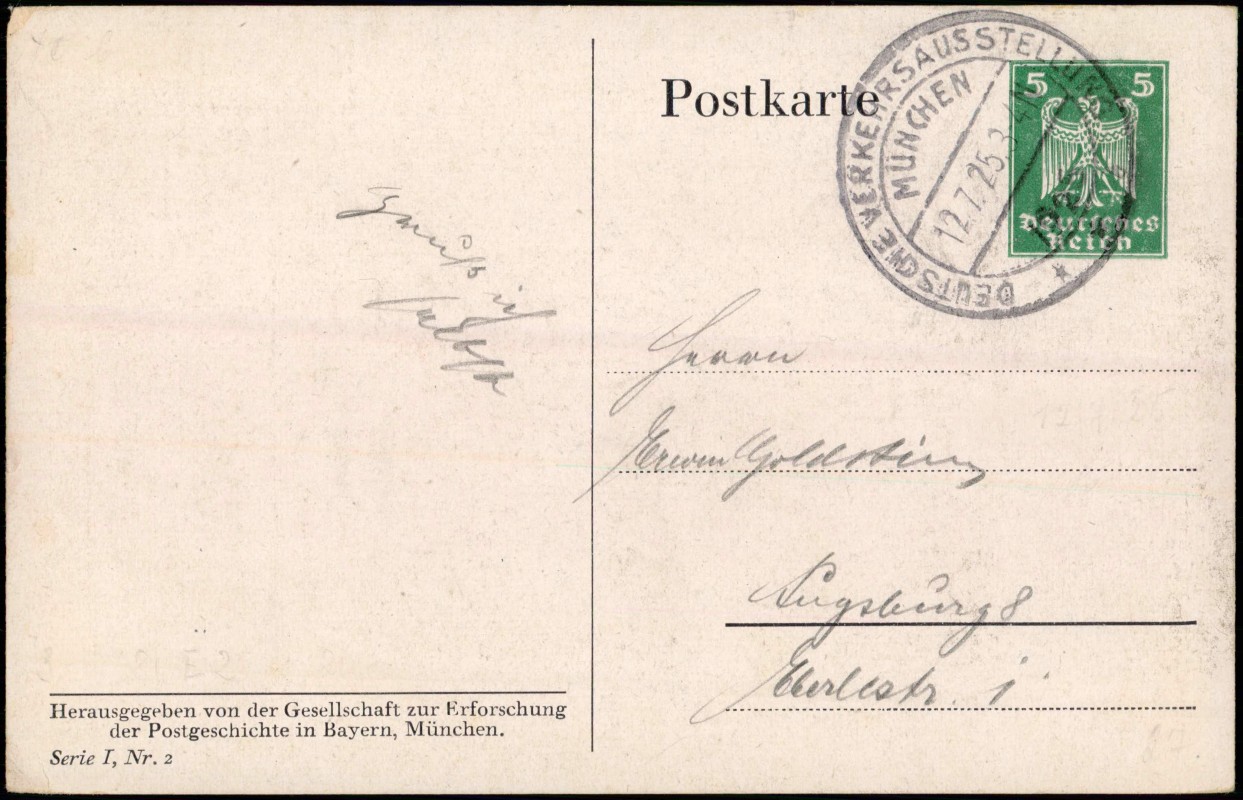 Postkarte
DEUTSCHE VERKEHRSAUSSTELLUNG
MÜNCHEN
12.7.25.3-4N
5 5
Deutsches
Reich
Herrn
Erwin Goldstein
Augsburg 8
Eberlestr. 1
Herausgegeben von der Gesellschaft zur Erforschung
der Postgeschichte in Bayern, München.
Serie I, Nr. 2